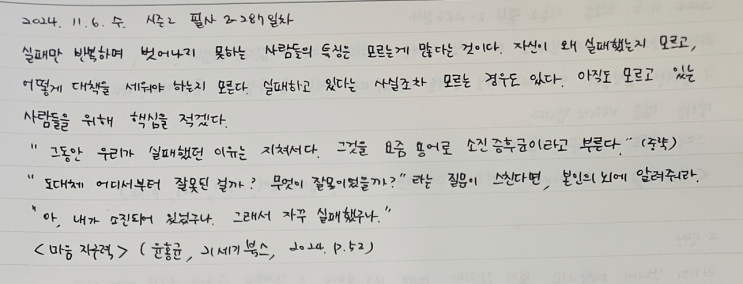 2024. 11. 6. 수. 시즌2 필사 2-287일차
실패만 반복하며 벗어나지 못하는 사람들의 특징은 모르는게 많다는 것이다. 자신이 왜 실패했는지 모르고,
어떻게 대책을 세워야 하는지 모른다. 실패하고 있다는 사실조차 모르는 경우도 있다. 아직도 모르고 있는
사람들을 위해 핵심을 적겠다.
" 그동안 우리가 실패했던 이유는 지쳐서다. 그것을 요즘 용어로 소진증후군이라고 부른다." (주쭉)
" 도대체 어디서부터 잘못된 걸까? 무엇이 잘못이었을까?" 라는 질문이 스친다면, 본인의 뇌에 알려줘라.
" 아, 내가 소진되어 있었구나. 그래서 자꾸 실패했구나."
<마음 지구력> (윤홍균, 21세기북스, 2024. p.52)